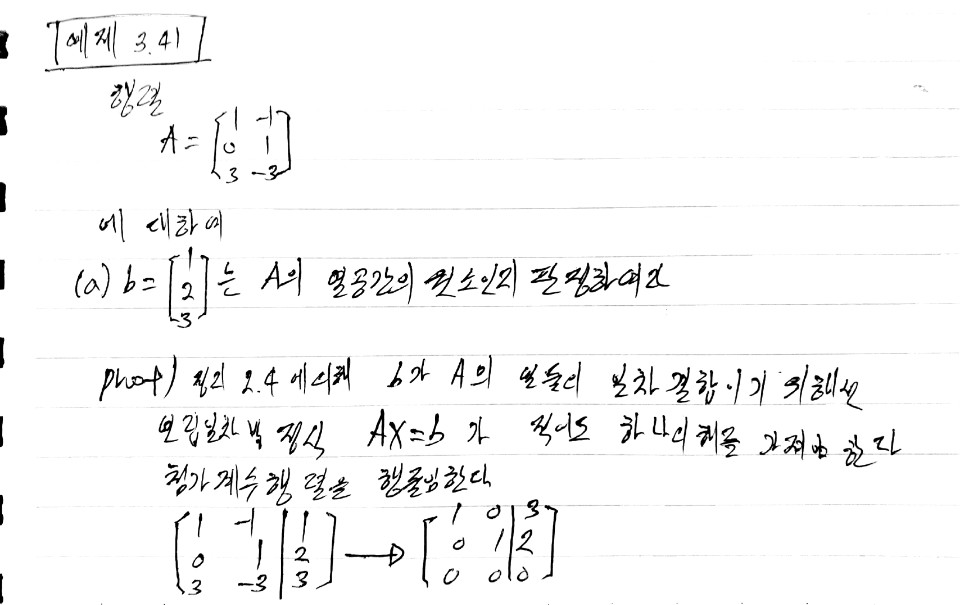 예제 3.41
행렬
A = [1 -1; 0 1; 3 -3]
에 대하여
(a) b = [1; 2; 3]는 A의 열공간의 원소인지 판정하여라
proof) 정리 2.4에 의해 b가 A의 열들의 일차 결합이기 위해선
연립일차방정식 AX=b 가 적어도 하나의 해를 가져야 한다
첨가계수행렬을 행줄임한다
[1 -1 | 1; 0 1 | 2; 3 -3 | 3] → [1 0 | 3; 0 1 | 2; 0 0 | 0]